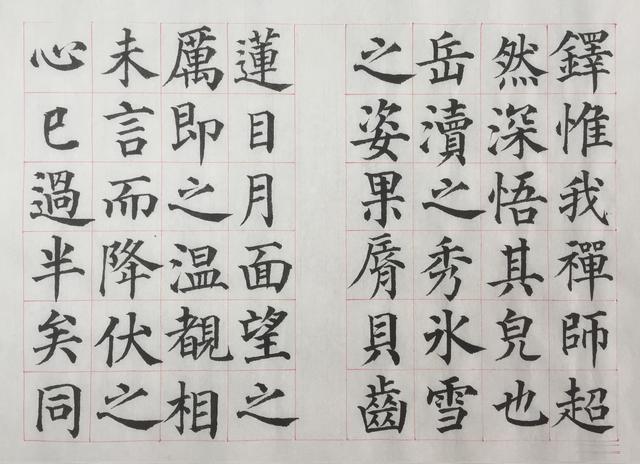 鐸惟我禪師超
然深悟其皃也
岳瀆之秀氷雪
之姿果脣貝齒
蓮目月面望之
厲即之温覩相
未言而降伏之
心已過半矣同